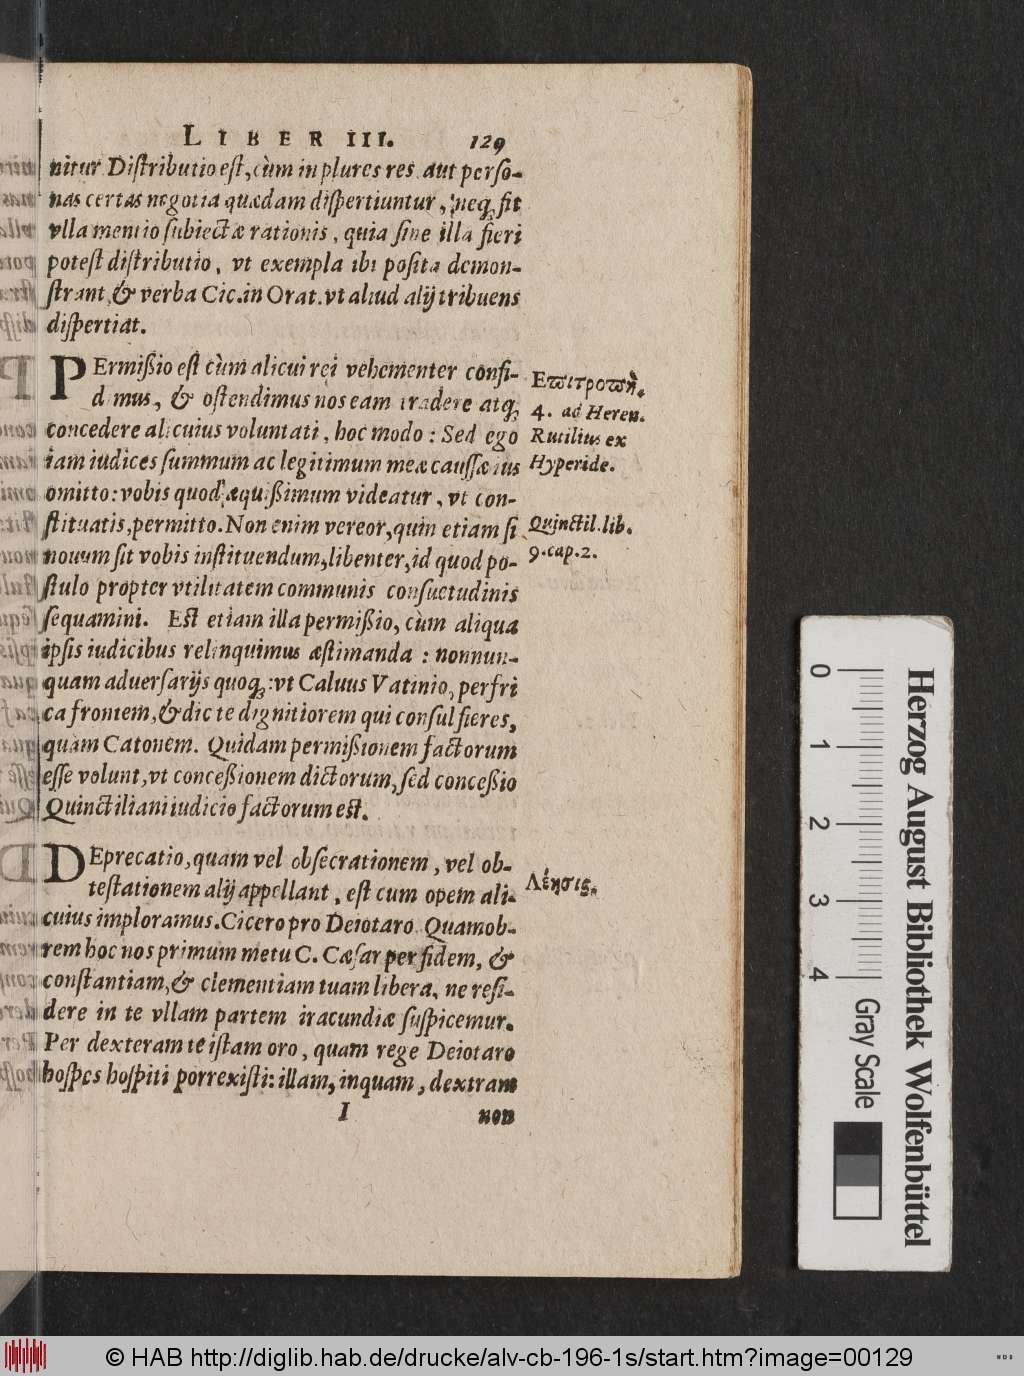 LIBER III. 129
nitur Distributio est, cùm in plures res aut perso-
nas certas negotia quædam dispertiuntur, neq; sit
vlla mentio subiectæ rationis, quia sine illa fieri
potest distributio, vt exempla ibi posita demon-
strant, & verba Cic. in Orat. vt aliud alij tribuens
dispertiat.
PErmißio est cùm alicui rei vehementer confi-
dimus, & ostendimus nos eam tradere atq;
concedere alicuius voluntati, hoc modo: Sed ego
iam iudices summum ac legitimum meæ caussæ ius
omitto: vobis quod æquißimum videatur, vt con-
stituatis, permitto. Non enim vereor, quin etiam si
nouum sit vobis instituendum, libenter, id quod po-
stulo propter vtilitatem communis consuetudinis
sequamini. Est etiam illa permißio, cùm aliqua
ipsis iudicibus relinquimus æstimanda: nonnun-
quam aduersarijs quoq;: vt Caluus Vatinio, perfri
ca frontem, & dic te dignitiorem qui consul fieres,
quàm Catonem. Quidam permißionem factorum
esse volunt, vt conceßionem dictorum, sed conceßio
Quinctiliani iudicio factorum est.
DEprecatio, quam vel obsecrationem, vel ob-
testationem alij appellant, est cum opem ali-
cuius imploramus. Cicero pro Deiotaro Quamob-
rem hoc nos primum metu C. Cæsar per fidem, &
constantiam, & clementiam tuam libera, ne resi-
dere in te vllam partem iracundiæ suspicemur.
Per dexteram te istam oro, quam rege Deiotaro
hospes hospiti porrexisti: illam, inquam, dextram
I non
Ἐπιτροπὴ.
4. ad Heren.
Rutilius ex
Hyperide.
Quinctil. lib.
9. cap. 2.
Δέησις.
Herzog August Bibliothek Wolfenbüttel
0 1 2 3 4
Gray Scale
© HAB http://diglib.hab.de/drucke/alv-cb-196-1s/start.htm?image=00129